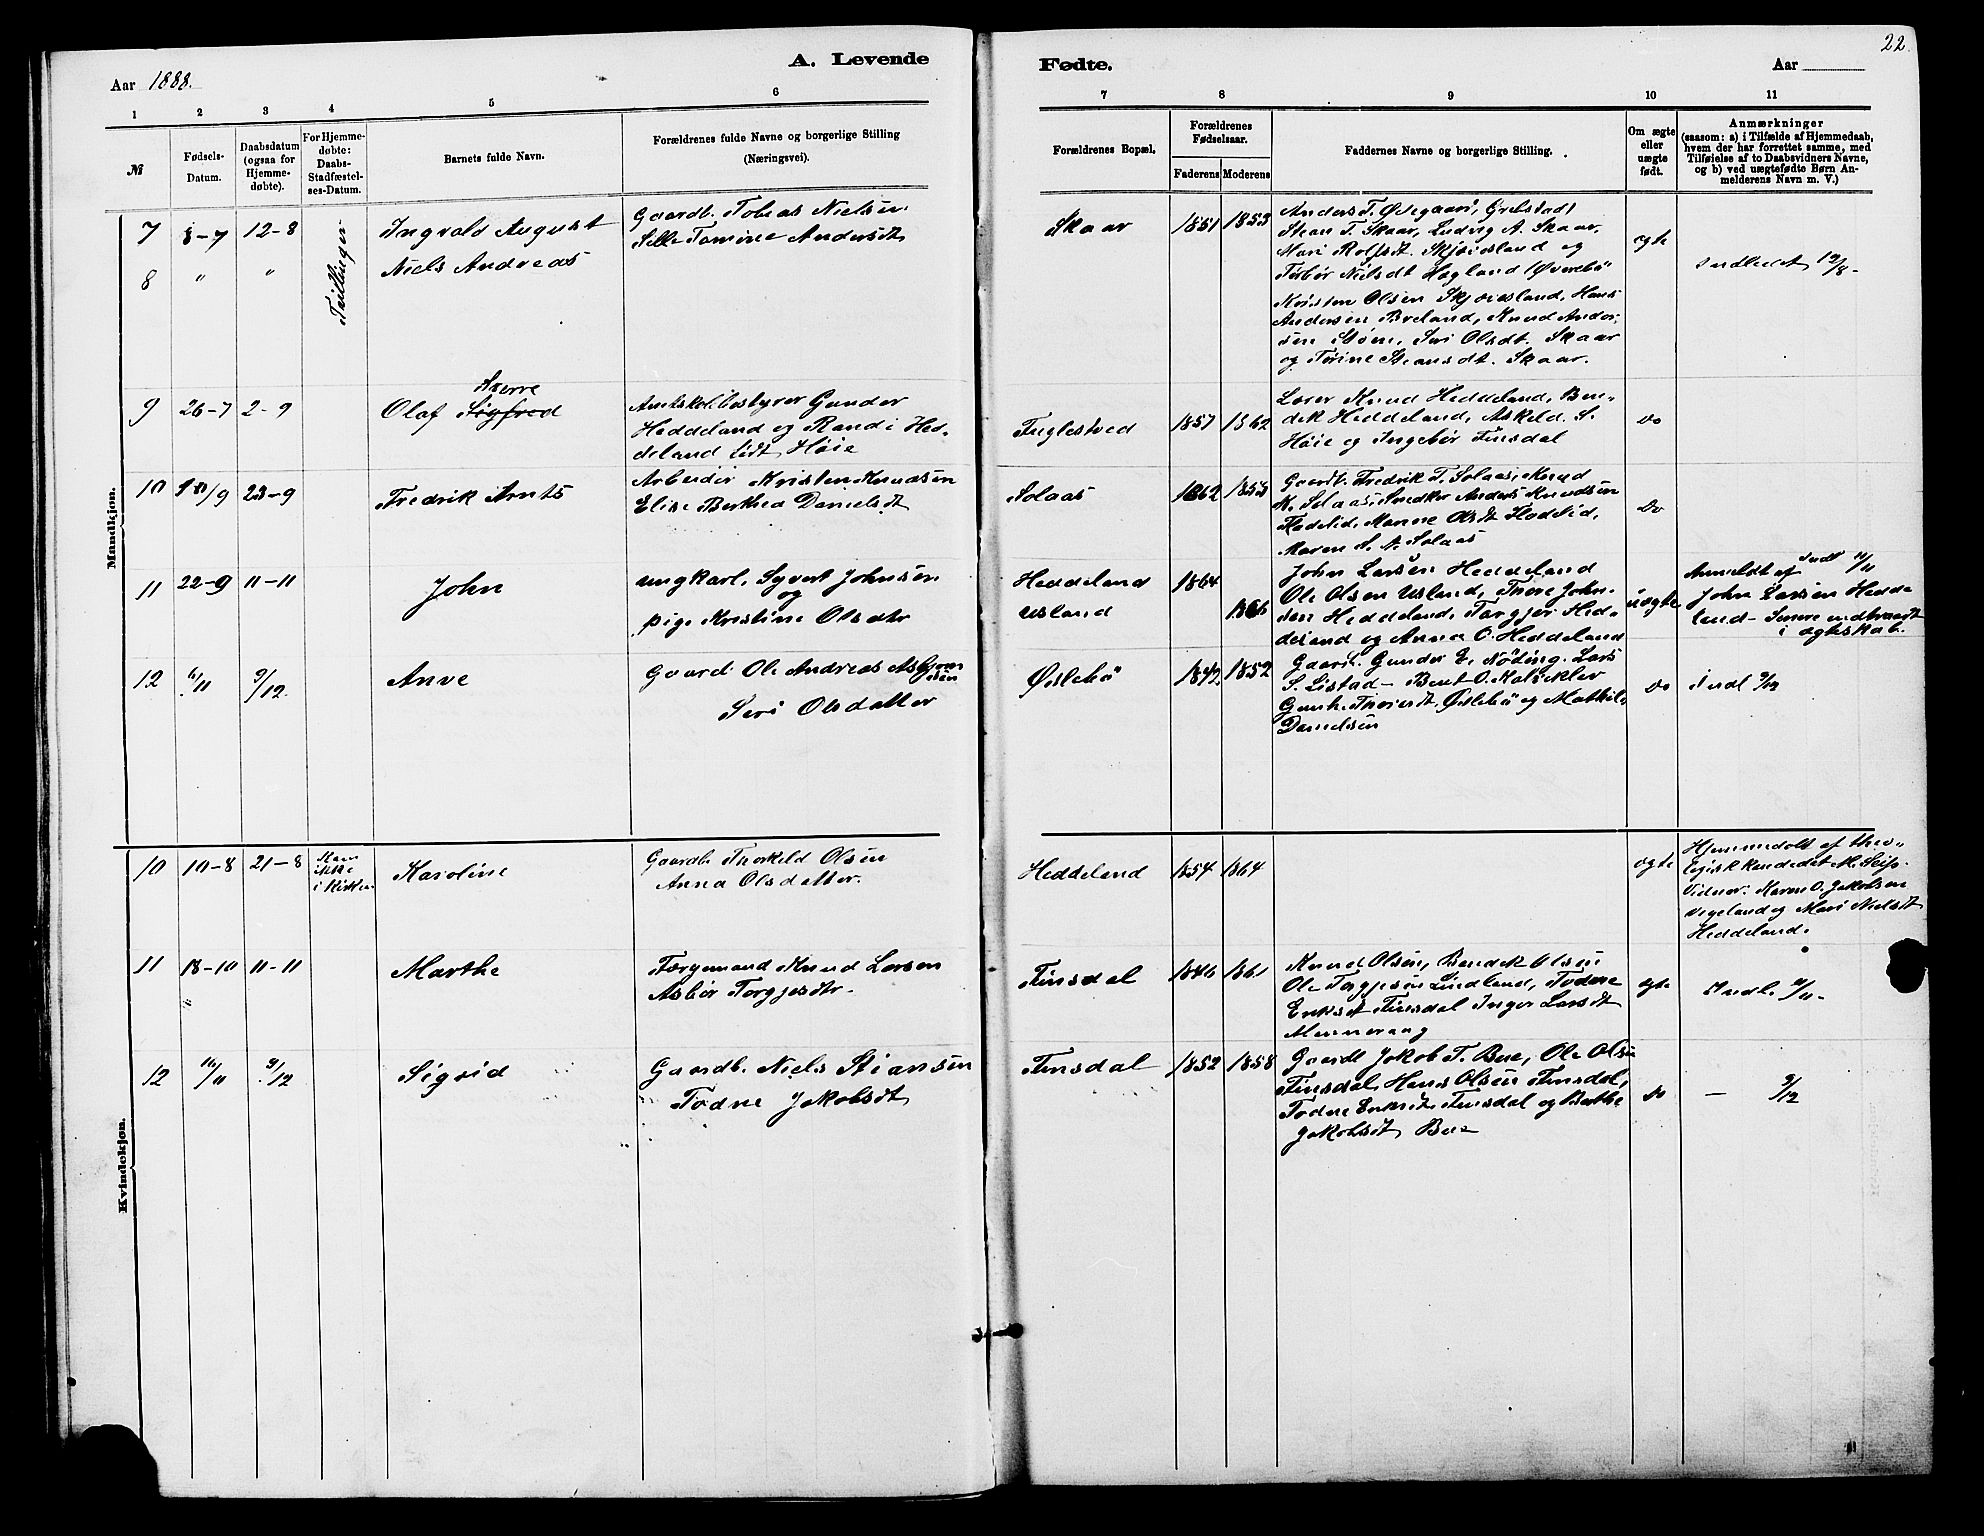 22.
A. Levende
Fødte.
Aar 1888.
Aar
1 2 3 4 5 6
7 8 9 10 11
№
Fødsels-
Datum.
Daabsdatum
(ogsaa for
Hjemme-
døbte).
For Hjemme-
døbte:
Daabs-
Stadfæstel-
ses-Datum.
Barnets fulde Navn.
Forældrenes fulde Navne og borgerlige Stilling
(Næringsvei).
Forældrenes Bopæl.
Forældrenes
Fødselsaar.
Faderens
Moderens
Faddernes Navne og borgerlige Stilling.
Om ægte
eller
uægte
født.
Anmærkninger
(saasom: a) i Tilfælde af Hjemmedaab,
hvem der har forrettet samme, med
Tilføielse af to Daabsvidners Navne,
og b) ved uægtefødte Børn An-
melderens Navn m. V.)
Mandkjøn.
7 8-7 12-8
Tvillinger
Ingvald August
Gaardb. Tobias Nielsen
Sille Tomine Andersdt
Skaar 1851 1853
Anders T. Ødegaard, Grebstad
Stean T. Skaar, Ludvig A. Skaar,
Mari Rolfsdt. Skjævesland og
Torbør Nielsdt Hogland Øvrebö
ægte
Indledet 12/8-
8 " "
Niels Andreas
Kristen Olsen Skjævesland, Hans
Andersen Breland, Knud Ander-
sen Støne, Siri Olsdt. Skaar
og Torine Steansdt. Skaar.
9 26-7 2-9
Olaf Sigfred
Sverre
Amtskolebestyrer Gunder
Heddeland og Randi Hed-
deland født Høie
Fuglestved 1857 1862
Lærer Knud Heddeland, Ben-
dik Heddeland, Askeld S.
Høie og Ingebør Finsdal
do
10 18/9 23-9
Fredrik Arnts
Arbeider Kristen Knudsen
Elise Berthea Danielsdt
Solaas 1862 1853
Gaardb. Fredrik T. Solaas, Knud
K. Solaas, Snedker Anders Knudsen
Flodelid, Marine Olsdt Flodelid,
Maren S. A. Solaas
Do
11 22-9 11-11
John
ungkarl. Syvert Johnsen
og
pige Kristine Olsdtr
Heddeland 1864
Usland 1866
John Larsen Heddeland
Ole Olsen Usland, Thore John-
sen Heddeland, Torgjer Hed-
deland og Anna O. Heddeland
uægte
Anmeldt af Indl 11/11
John Larsen Hedde-
land - Senere indtraadt
i ægteskab.
12 6/11 9/12.
Anve
Gaard. Ole Andreas Asbjørn
sen
Seri Olsdatter
Øvlebö 1842 1852
Gaardb. Gunder E. Nöding. Lars
S. Listad - Bent O. Kaläklev
Gunh. Thorsdt. Øvlebö og Mathilde
Danielsen
do
Indl 9/12
Kvindekjøn.
10 10-8 21-8
Kom
ikke
i Kirken
Karoline
Gaardb. Thorkeld Olsen
Anna Olsdatter.
Heddeland 1854 1864
ægte
Hjemmedøbt af theo-
logisk kandidat M. Seip.
Vidner: Karen O. Jakobsen
Vegeland og Mari Nielsdt
Heddeland.
11 18-10 11-11
Marthe
Færgemand Knud Larsen
Asbør Torgjesdtr.
Finsdal 1846 1861
Knud Olsen, Bendik Olsen
Ole Torgjesen Lindland, Todne
Eriksdt Finsdal Inger Larsdt
ægte
Indl. 11/11-
12 16/11 9/12
Sigrid
Gaardb. Niels Stiansen
Todne Jakobsdt
Finsdal 1852 1858
Gaardb Jakob T. Bue, Ole Olsen
Finsdal, Hans Olsen Finsdal,
Todne Eriksdt. Finsdal og Berthe
Jakobsdt, Bue
do
- 9/12